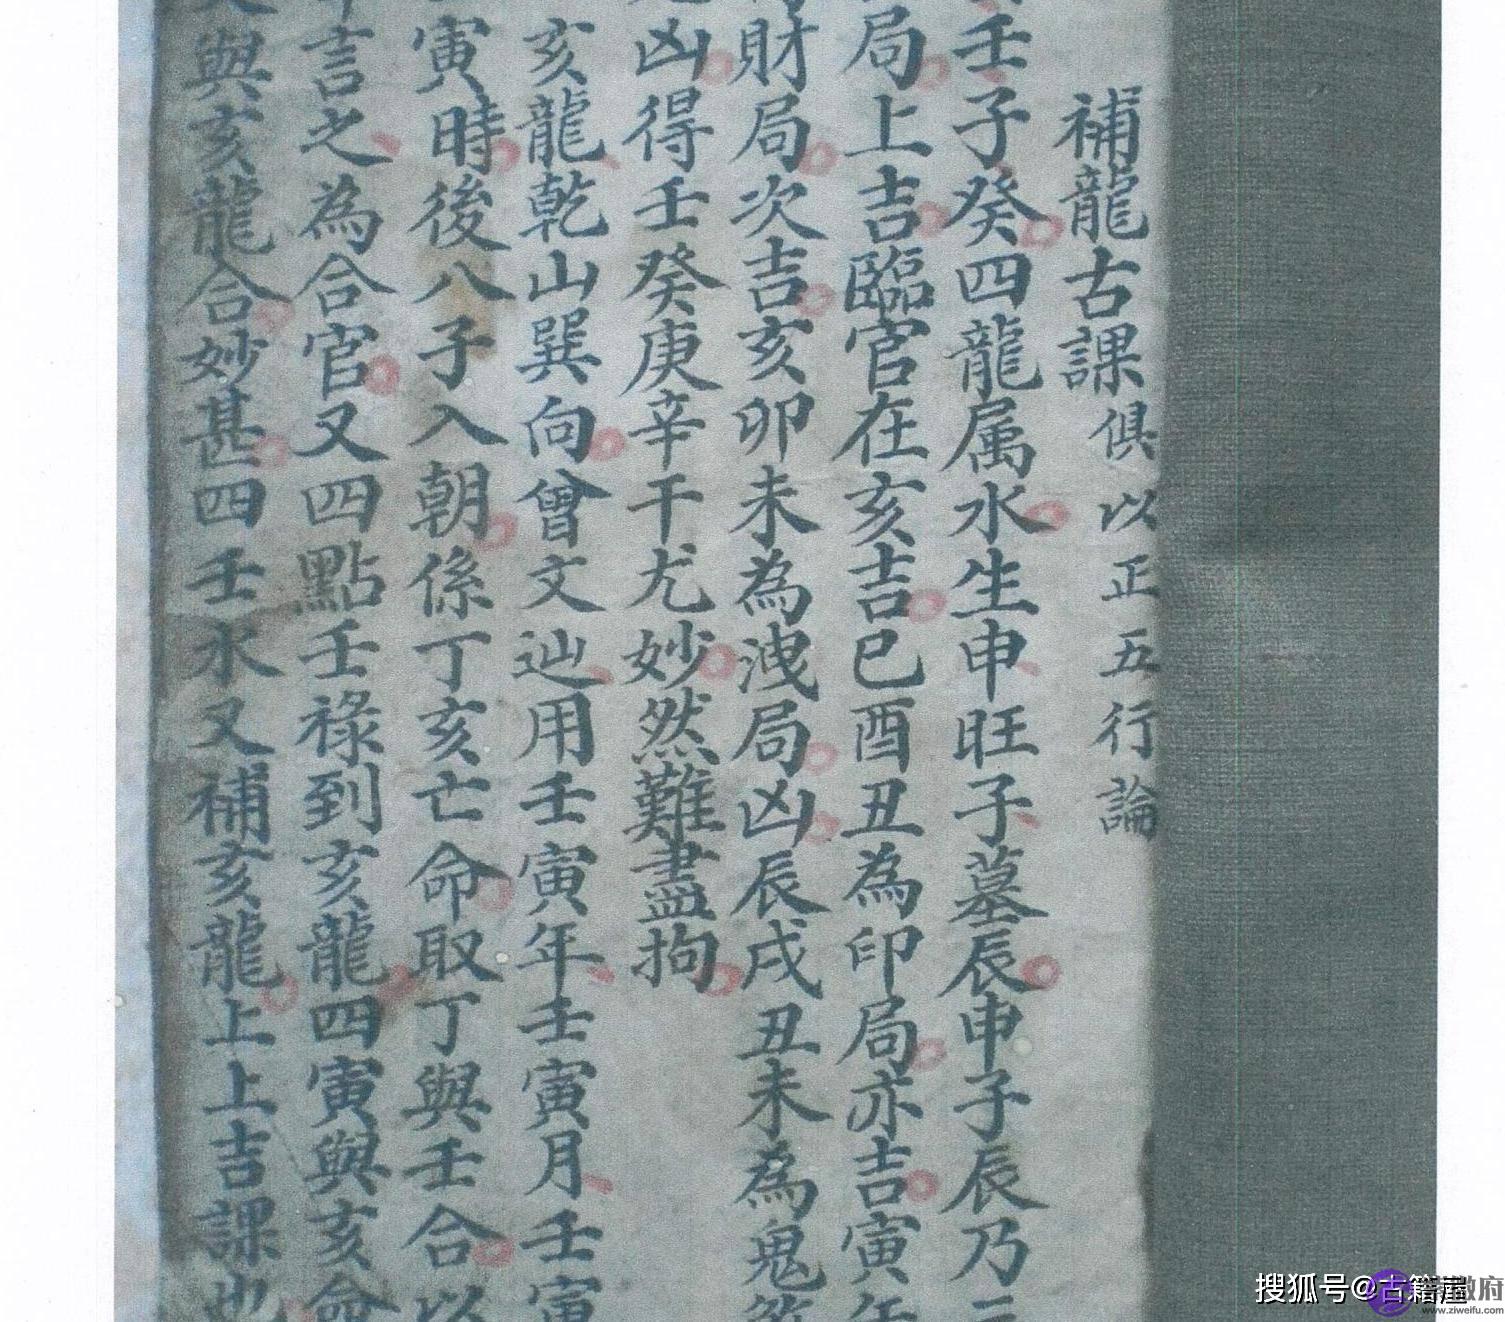 補龍古課俱以正五行論
壬子癸四龍属水生申旺子墓辰申子辰乃
局上吉臨官在亥吉巳酉丑為印局亦吉寅
財局次吉亥卯未為洩局凶辰戌丑未為鬼
凶得壬癸庚辛干尤妙然難盡拘
亥龍乾山巽向曾文辿用壬寅年壬寅月壬寅
寅時後八子入朝係丁亥亡命取丁與壬合以
言之為合官又四點壬祿到亥龍四寅與亥命
與亥龍合妙甚四壬水又補亥龍上上吉課也
搜狐号@古籍屋
www.ziweifu.com